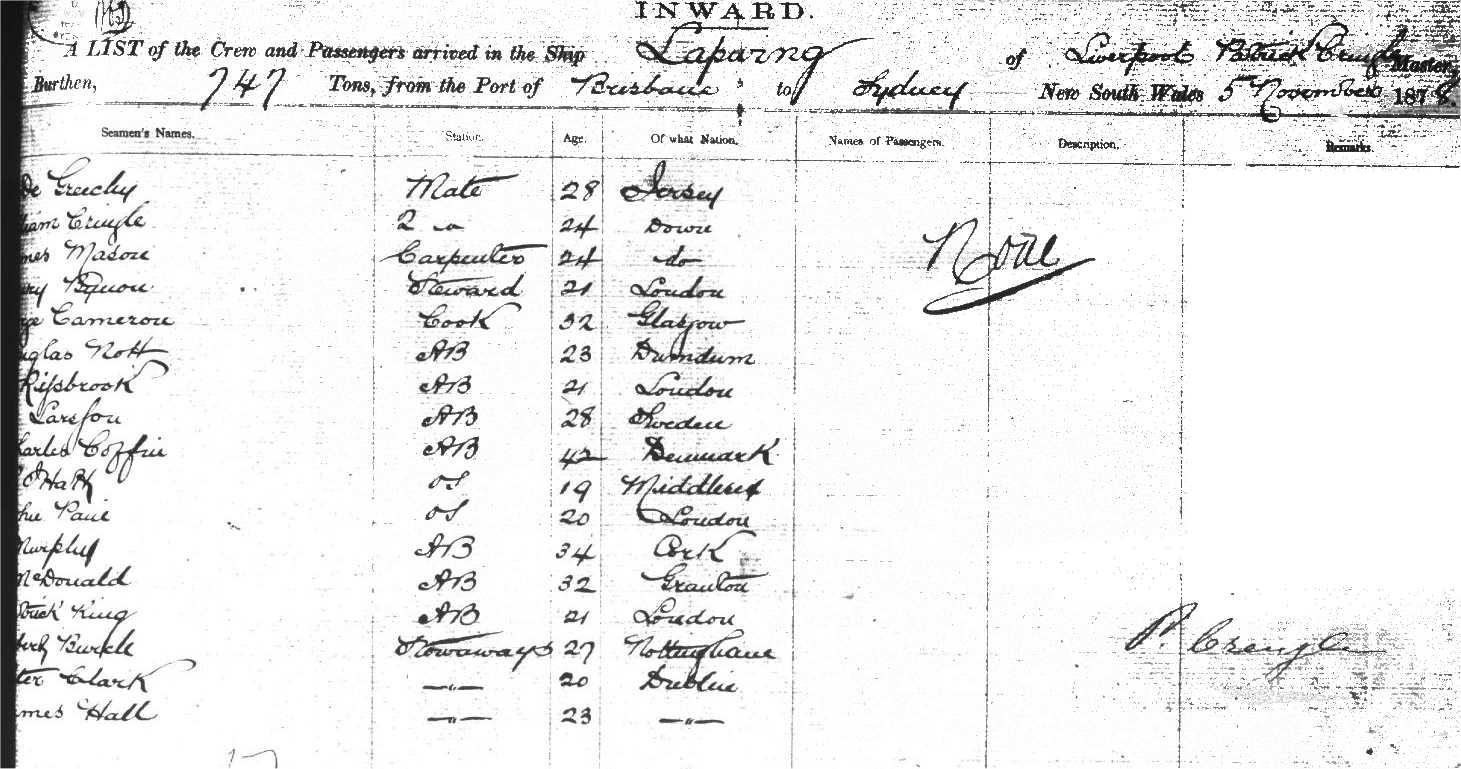 INWARD.
A LIST of the Crew and Passengers arrived in the Ship Laparng of Liverpool Patrick Creugle Master,
Burthen, 747 Tons, from the Port of Brisbane to Sydney New South Wales 5 November 1878.
Seamen's Names. Station. Age. Of what Nation. Names of Passengers. Description. Remarks.
Mate 28 Jersey
2 " 24 Down
Mason Carpenter 24 do
Steward 21 London
Cameron Cook 32 Glasgow
Nott AB 23 Dumdum
Kissbrook AB 21 London
Larsson AB 28 Sweden
Coffin AB 42 Denmark
OS 19 Middlesex
OS 20 London
Murphy AB 34 Cork
McDonald AB 32 Granton
King AB 21 London
Stowaways 27 Nottingham
Clark —"— 20 Dublin
Hall —"— 23 —"—
None
P. Creugle
17